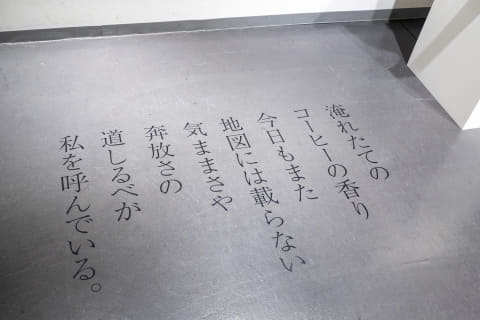 淹れたての
コーヒーの香り
今日もまた
地図には載らない
気ままさや
奔放さの
道しるべが
私を呼んでいる。